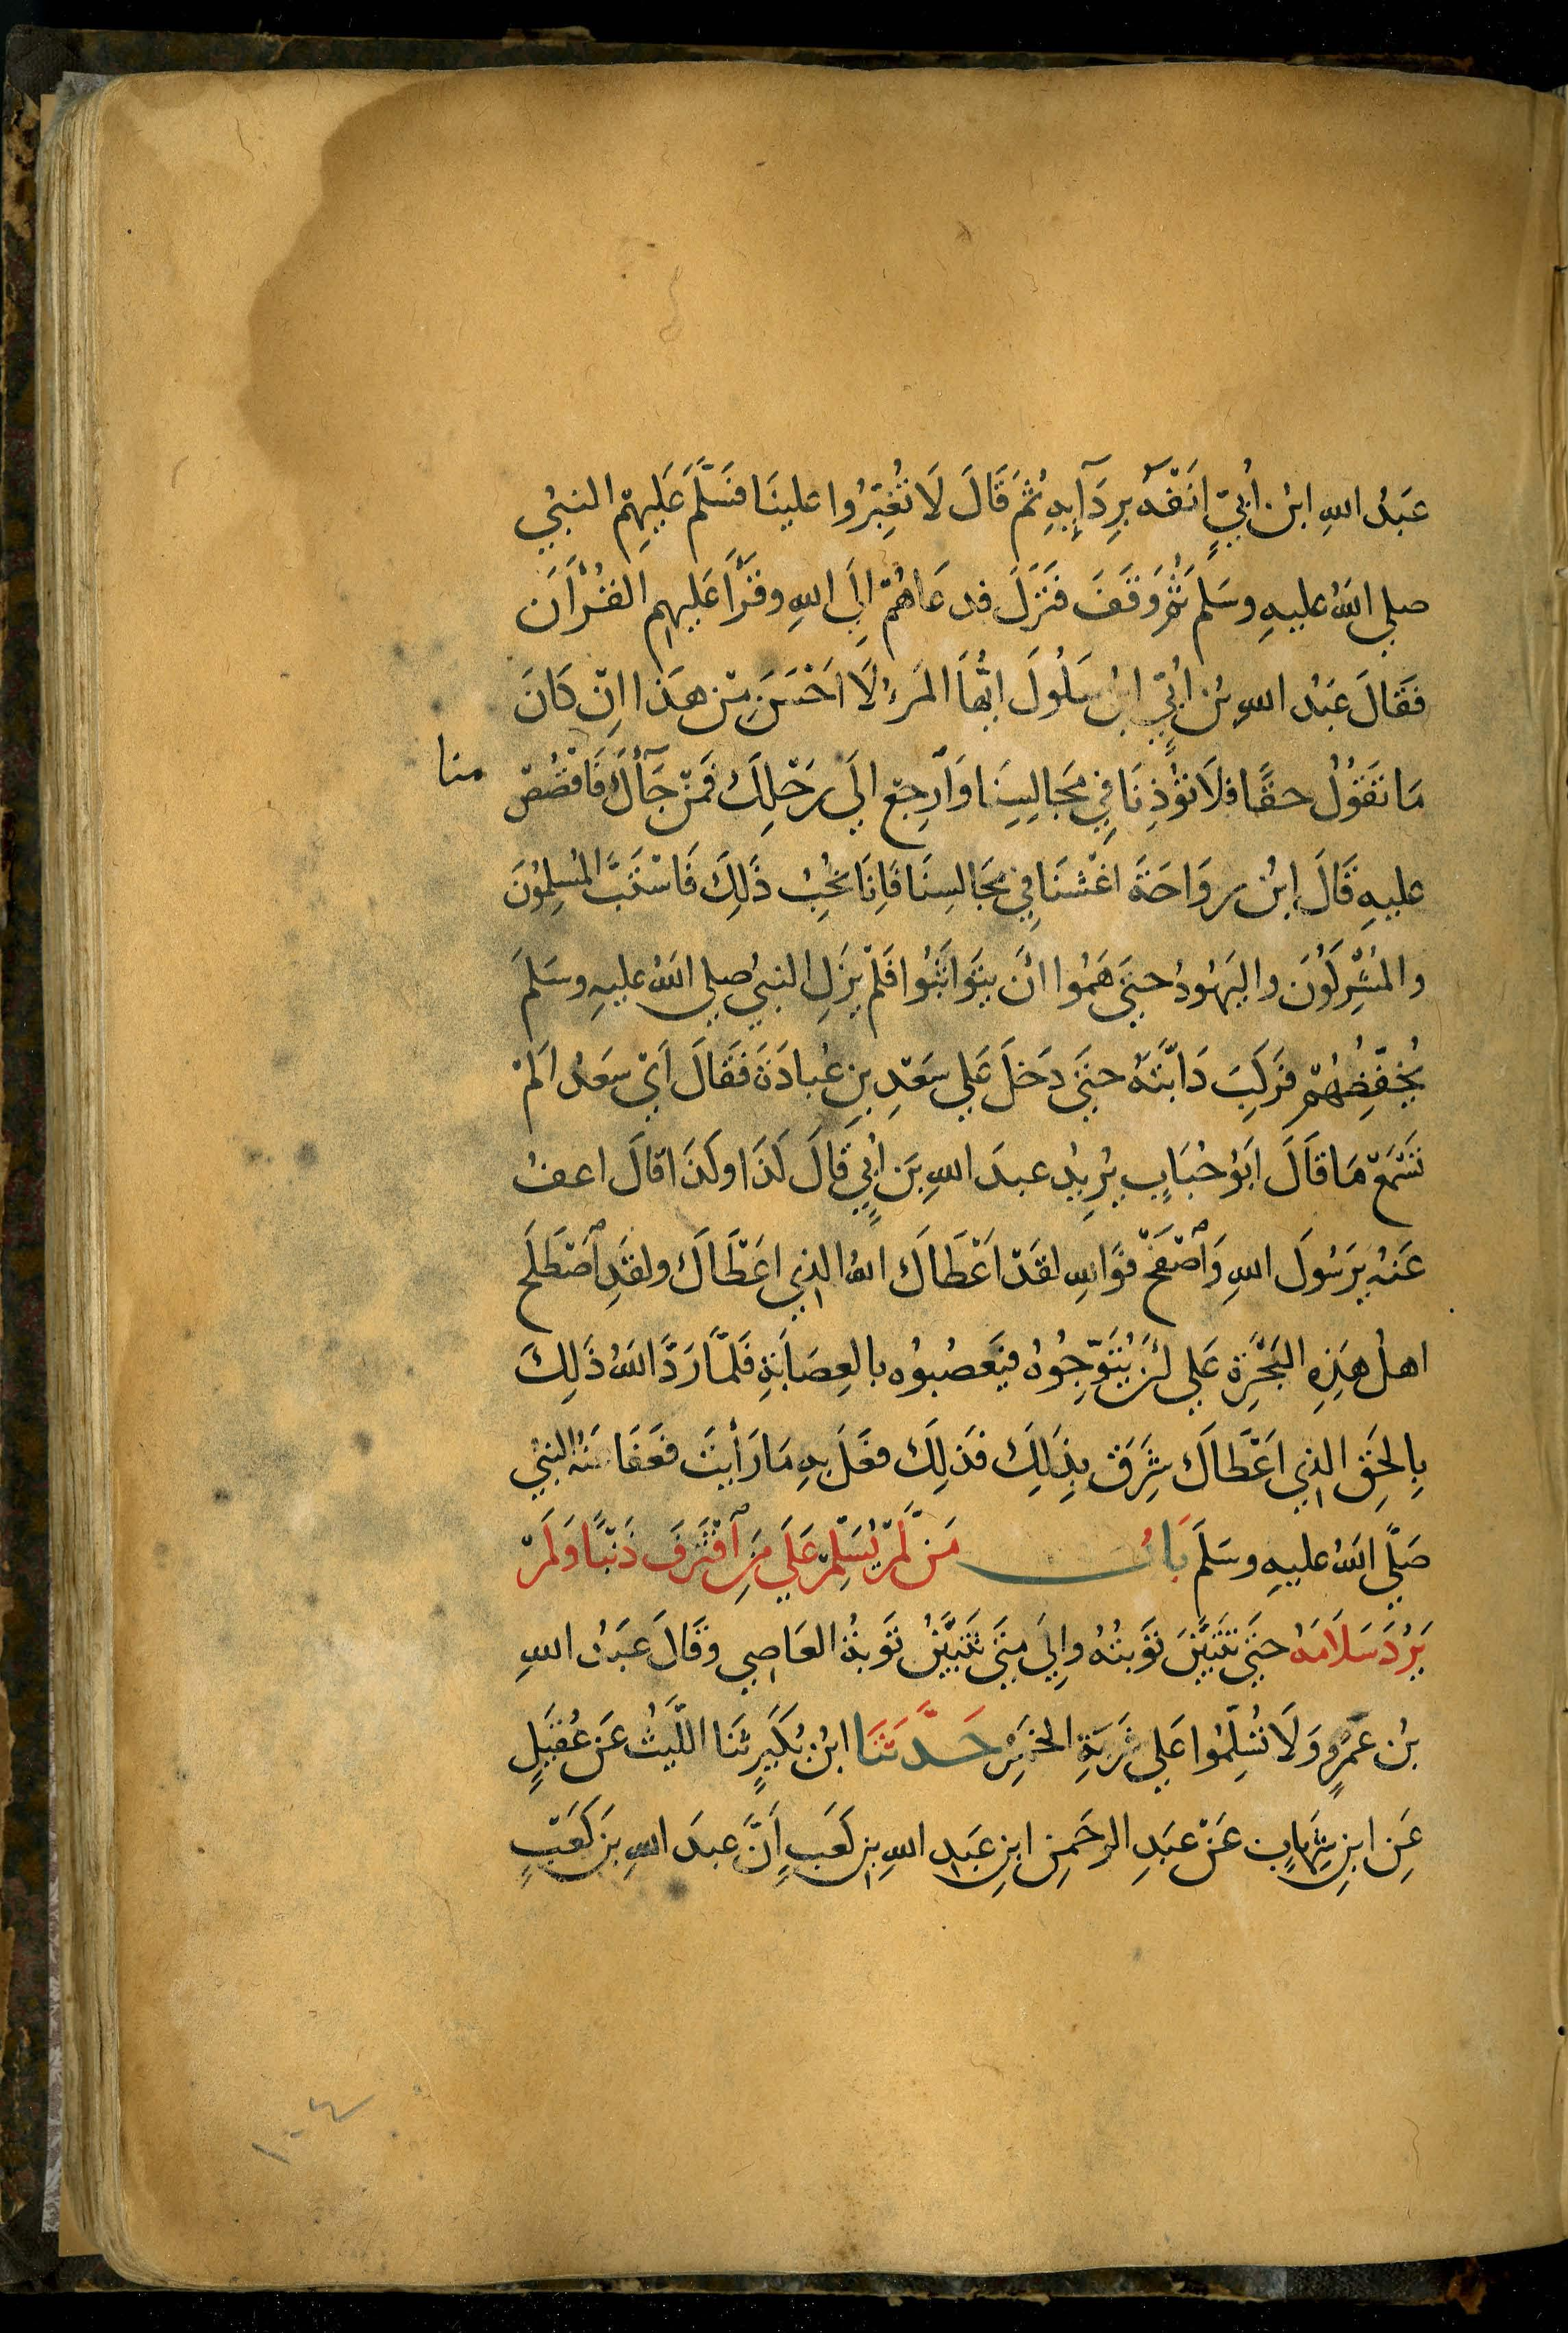 عَبْدُ اللهِ ابْنُ اُبَيٍّ اَنفَهُ بِرِدَآئِهِ ثُمَّ قَالَ لَا تُغَبِّرُوا علينَا فَسَلَّمَ عَلَيهِمُ النبيُ
صلي اللهُ عليهِ وسَلمَ ثُمَّ وَقَفَ فَنَزَلَ فدعَاهُمْ اِلَي اللهِ وقَرَأَ عَلَيهِم القُرْاَنَ
فقَالَ عَبْدُ اللهِ بنُ اُبَيٍّ ابنُ سَلُولَ ايُّهَا المَرءُ لَا اَحْسَنَ مِنْ هَذا اِنْ كَانَ
مَا تَقُوْلُ حقًّا فلَا تؤْذِنَا فِي مَجَالِسِنَا وَارجِعْ اِلَي رَحْلِكَ فَمَنْ جَآءَكَ فَاقْصُصْ
منا
عليهِ قَالَ ابْنُ رواحَةَ اغْشَنَا فِي مَجَالسِنَا فَاِنَا نُحِبُ ذَلِكَ فَاسْتَبَّ المُسلِمُونَ
والمُشْرِكُونَ واليَهُودُ حتيَ هَمُوا انْ يتَوَاثَبُوا فَلَمْ يزَلِ النبيُ صلي اللهُ عليهِ وسَلمَ
يُخَفِّضُهُمْ فرَكِبَ دَابَّتَهُ حتيَ دَخلَ عَلي سَعْدِ بنِ عُبادَةَ فَقَالَ اَيْ سَعْدُ اَلَمْ
تسْمَعْ مَا قَالَ ابَوُ حُبَابٍ يُرِيدُ عبدَ اللهِ بنَ اُبَيٍ قَالَ كَذَا وكَذَا قالَ اعفُ
عَنْهُ يرَسُولَ اللهِ وَاصْفَحْ فوَاللهِ لقَدْ اعَْطَاكَ اللهُ الذِي اعَْطَاكَ ولقَدِ اصْطَلَحَ
اهلُ هَذِهِ البَحْرَةِ عَلي انْ يُتَوِّجُوهُ فيَعصُبوُه بالعِصَابَةِ فَلمَّا رَدَّ اللهُ ذَلِكَ
بِالحَقِ الذِي اعَْطَاكَ شَرِقَ بِذَلِكَ فذَلِكَ فعَلَ بِهِ مَا رَأيتَ فعَفَا عَنْهُ النبيُ
صَلَّي اللهُ عليهِ وسَلمَ بَابُ مَنْ لَمْ يُسَلِّمْ عَلَي مَنِ اقْتَرَفَ ذَنْبًا وَلَمْ
يَرُدَ سَلَامَهُ حتيَ تتَبيَّنَ توَبتُهُ واِلَي متيَ تتَبيَّنُ توَبةُ العَاصِي وقَالَ عَبدُ اللهِ
بنُ عَمْرٍو وَلَا تُسَلِّمُوا عَلي شَرَبَةِ الخمَرِ حَدَّثَنَا ابْنُ بُكَيرٍ ثنَا اللَّيثُ عَنْ عُقيَلٍ
عَنِ ابنِ شِهَابٍ عَنْ عَبدِ الرحَمنِ ابنِ عَبدِ اللهِ بنِ كَعبٍ اَنَّ عبدَ اللهِ بنَ كَعْبٍ
١٠٤